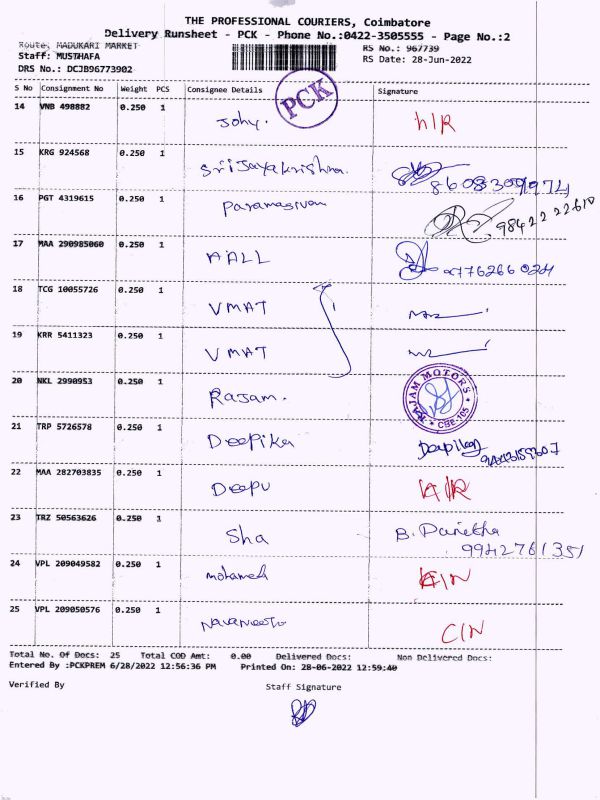 THE PROFESSIONAL COURIERS, Coimbatore
Delivery Runsheet - PCK - Phone No.:0422-3505555 - Page No.:2
Route: MADUKARI MARKET
Staff: MUSTHAFA
DRS No.: DCJB96773902
RS No.: 967739
RS Date: 28-Jun-2022
S No Consignment No Weight PCS Consignee Details Signature
PCK
14 VNB 498882 0.250 1 Johy. h/R
15 KRG 924568 0.250 1 Srijayakrishna.
16 PGT 4319615 0.250 1 Paramasivam 98422 22610
17 MAA 290985060 0.250 1 AALL
18 TCG 10055726 0.250 1 VMAT
19 KRR 5411323 0.250 1 VMAT
20 NKL 2990953 0.250 1 Rajam. RAJAM MOTORS * CBE-105 *
21 TRP 5726578 0.250 1 Deepika Deepika
22 MAA 282703835 0.250 1 Deepu
23 TRZ 50563626 0.250 1 Sha B. Panetha
9942761351
24 VPL 209049582 0.250 1 mohamed
25 VPL 209050576 0.250 1 C/N
Total No. Of Docs: 25 Total COD Amt: 0.00 Delivered Docs: Non Delivered Docs:
Entered By :PCKPREM 6/28/2022 12:56:36 PM Printed On: 28-06-2022 12:59:40
Verified By Staff Signature